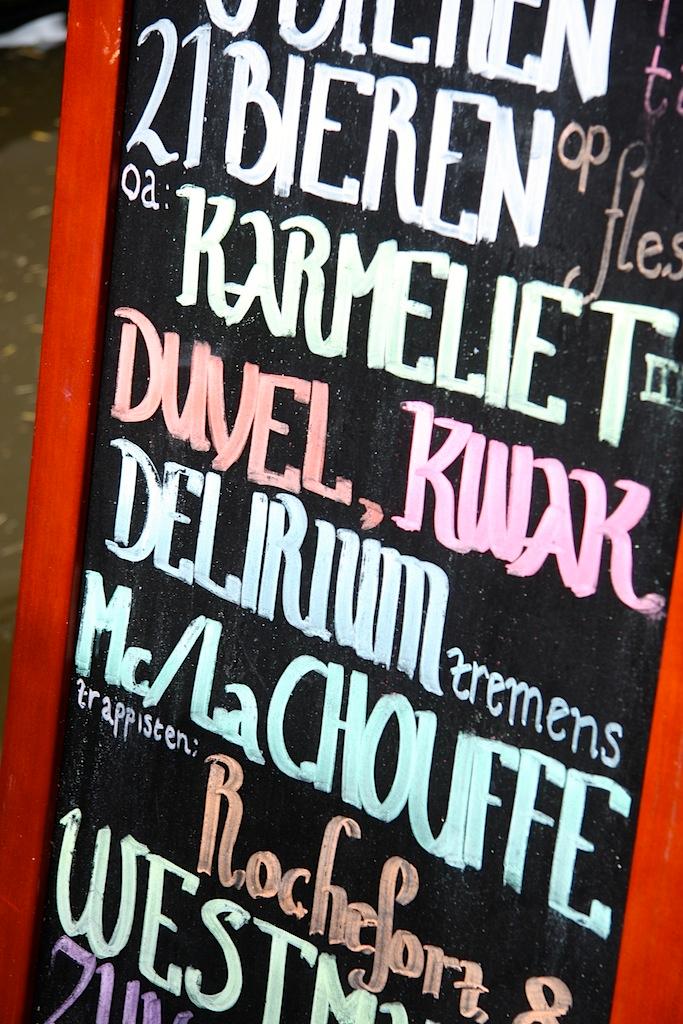 BIEREN
21 BIEREN op fles
oa: KARMELIET
DUVEL, KWAK
DELIRIUM tremens
Mc/La CHOUFFE
trappisten:
Rochefort, 8
WESTM